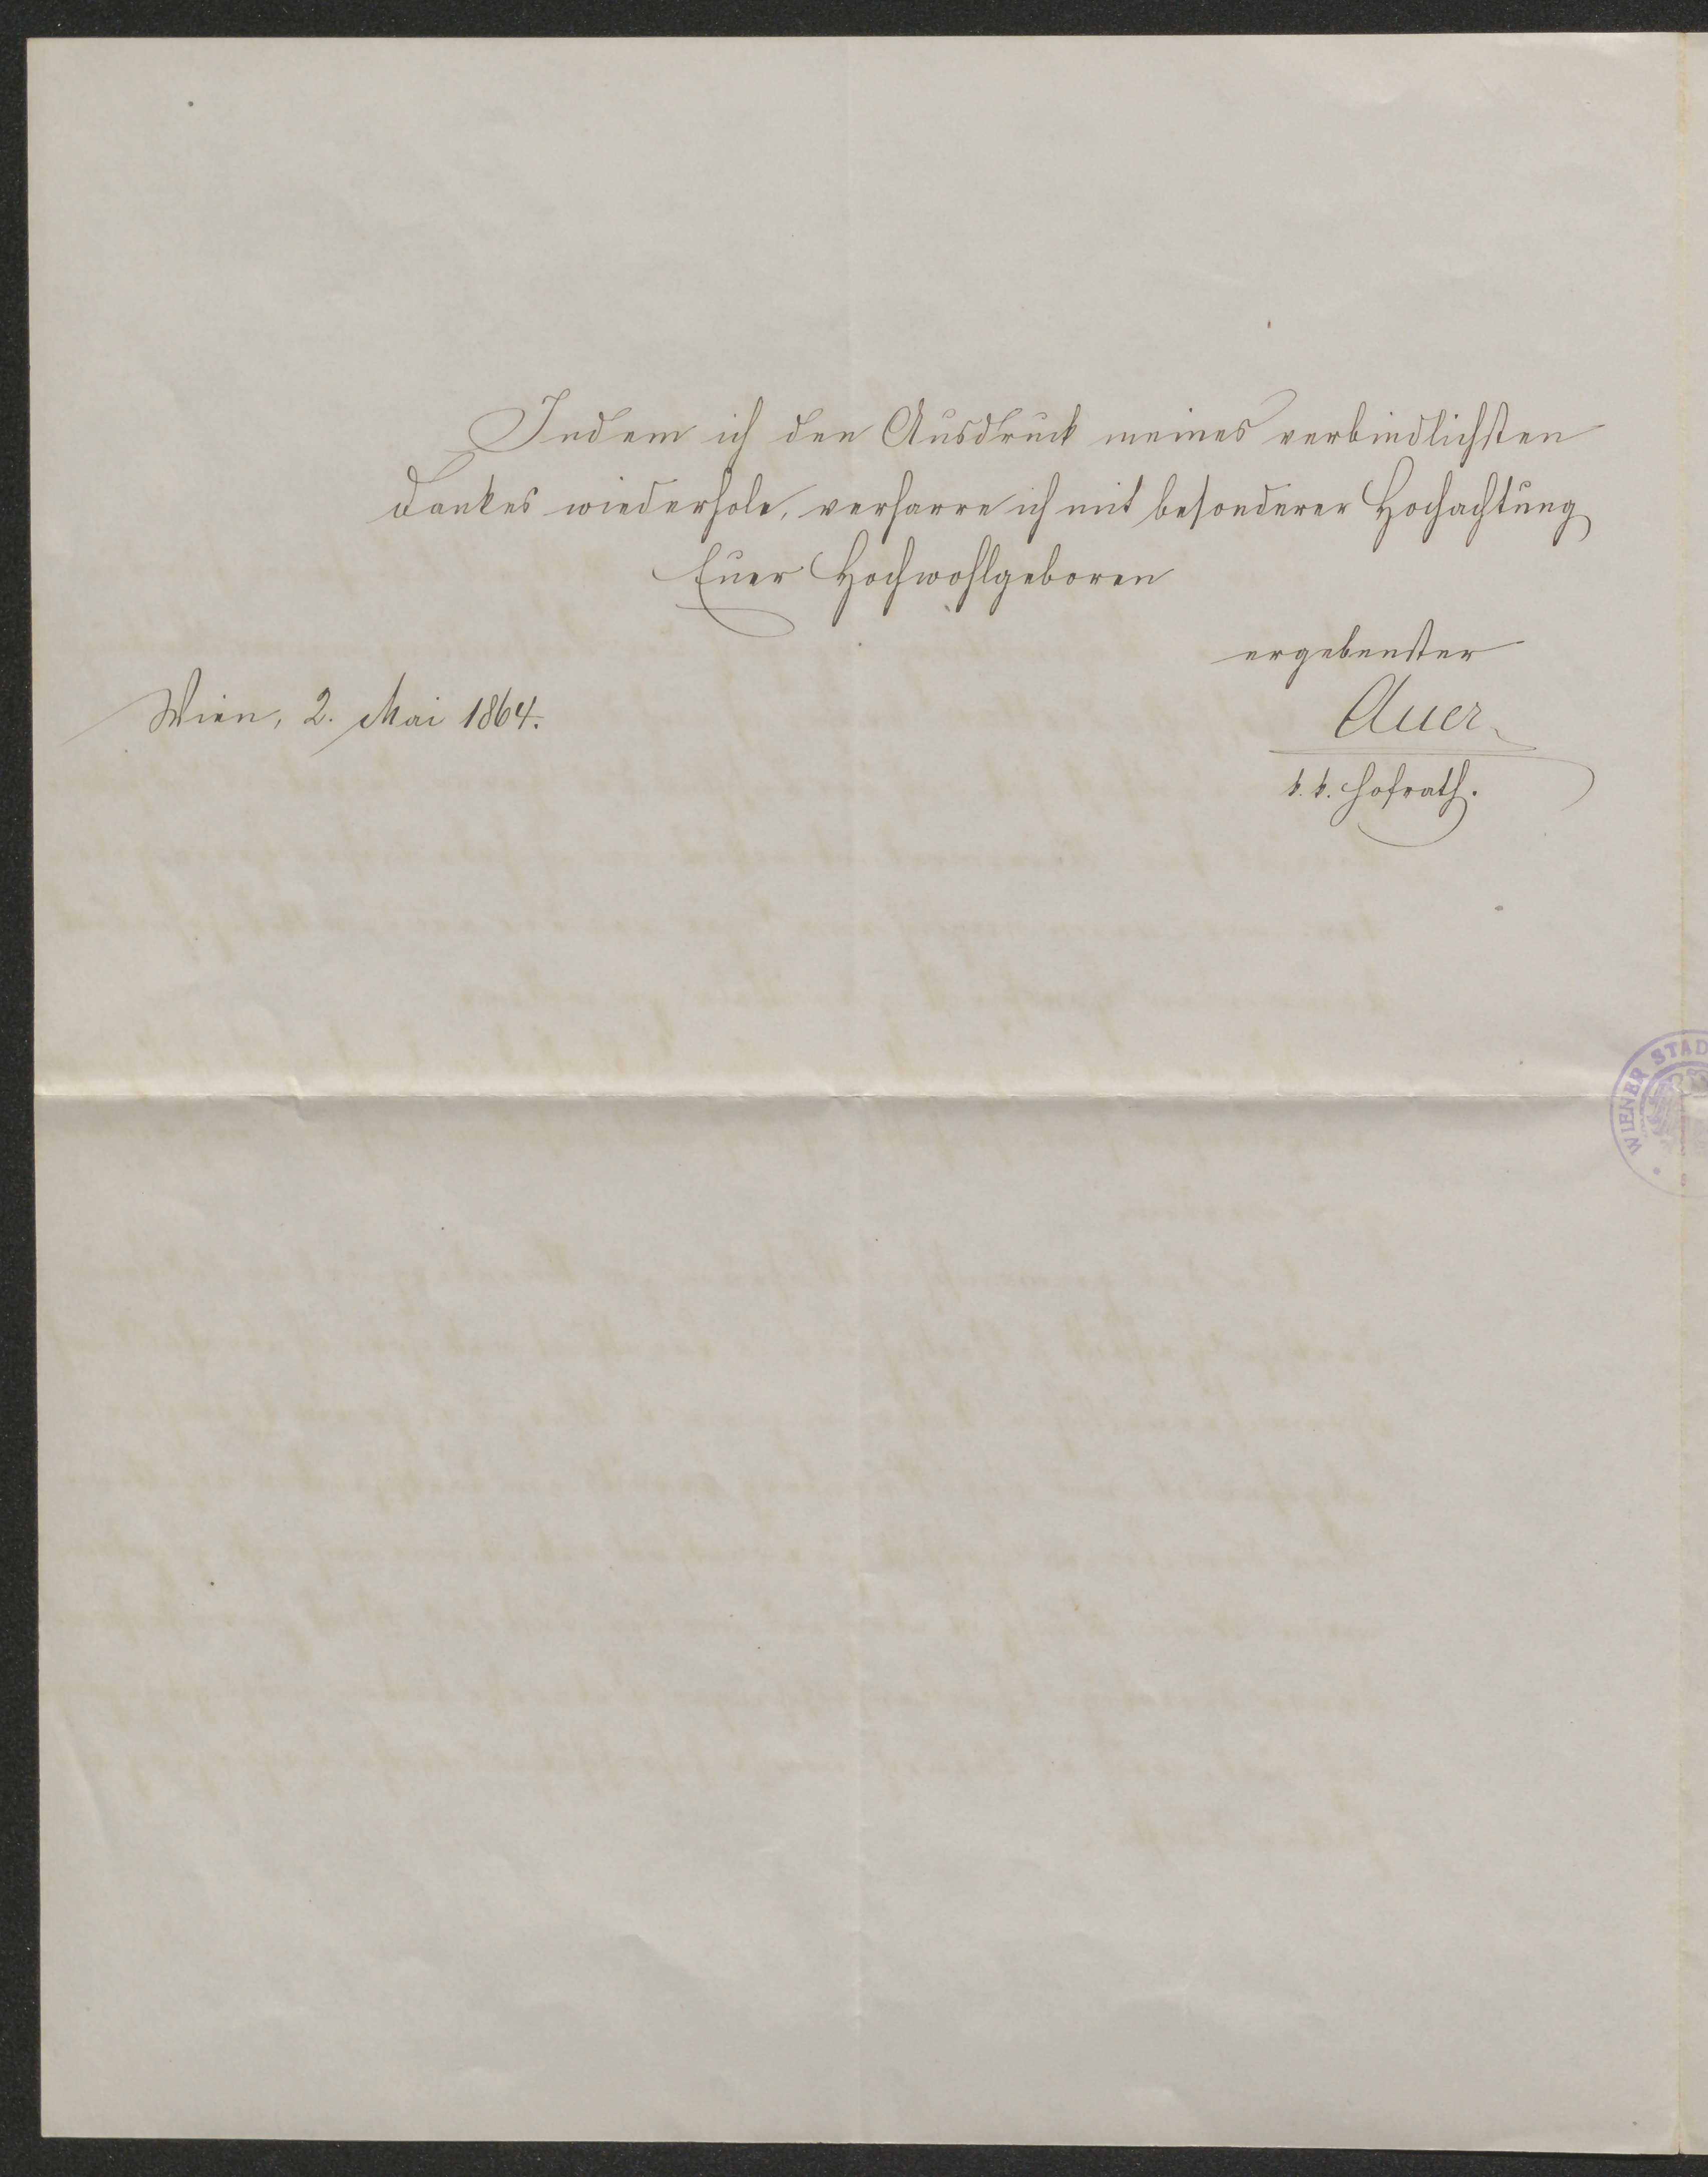 Indem ich den Ausdruck meines verbindlichsten
Dankes wiederhole, verharre ich mit besonderer Hochachtung
Euer Hochwohlgeboren
ergebenster
Wien, 2. Mai 1864.
Auer
k. k. Hofrath.
WIENER STAD